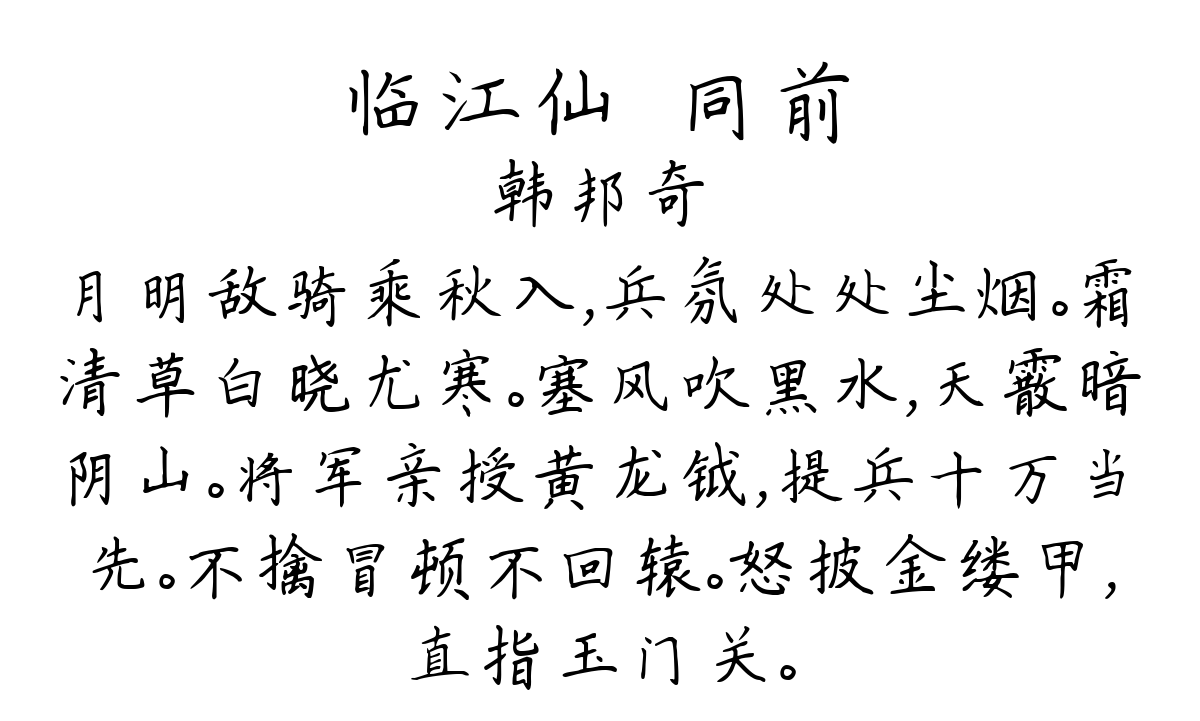 临江仙 同前
韩邦奇
月明敌骑乘秋入,兵氛处处尘烟。霜
清草白晓尤寒。塞风吹黑水,天霰暗
阴山。将军亲授黄龙钺,提兵十万当
先。不擒冒顿不回辕。怒披金缕甲,
直指玉门关。